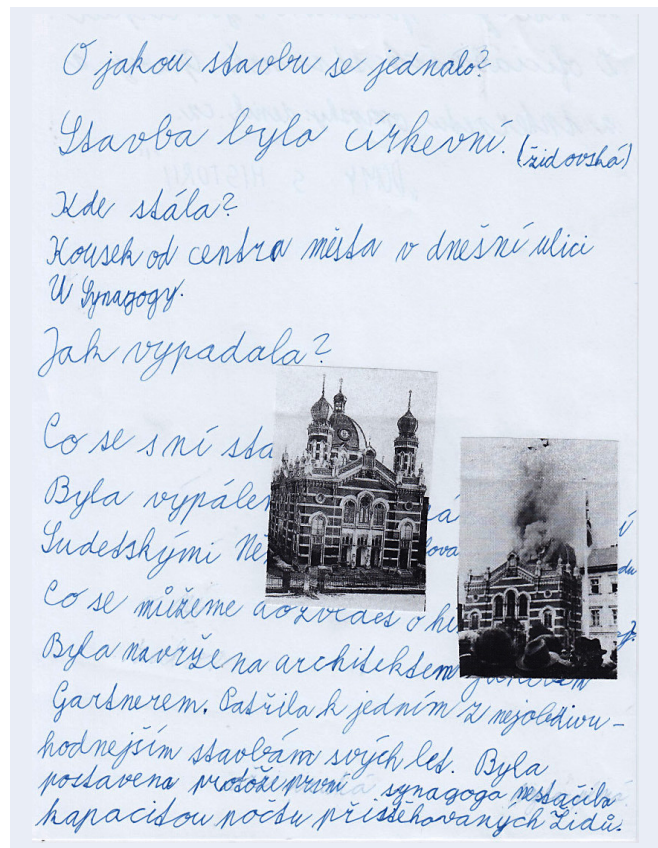 O jakou stavbu se jednalo?
Stavba bylo církevní. (židovská)
Kde stála?
Kousek od centra města v dnešní ulici
U Synagogy.
Jak vypadala?
Co se s ní sta
Byla vypálen
Sudetskými Ně
Co se můžeme dozvědět o hi
Byla navržena architektem
Gartnerem. Patřila k jedním z nejobdivu-
hodnejším stavbám svých let. Byla
postavena protože první synagoga nestačila
kapacitou počtu přistěhovaných Židů.